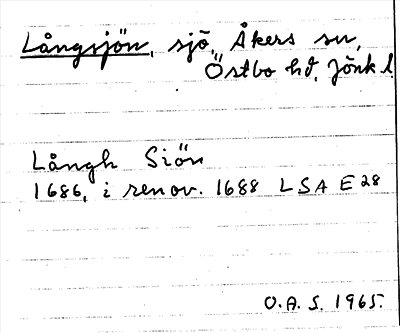 Långsjön, sjö, Åkers sn,
Östbo hd, Jönk l.
Långh Siön
1686, i renov. 1688 LSA E 28
O.A.S. 1965.